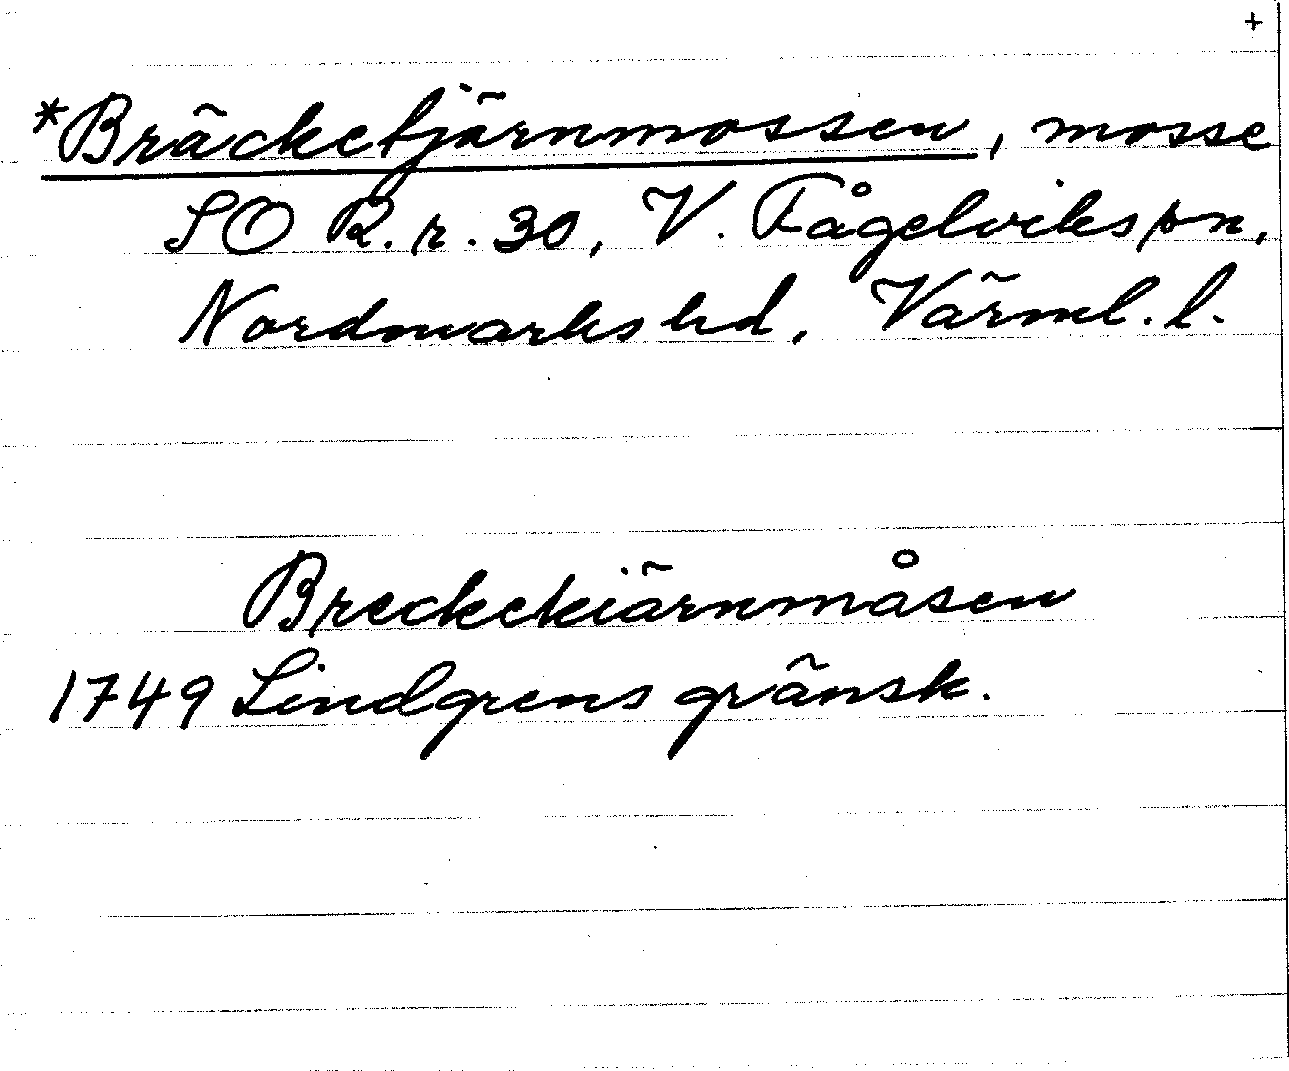 +
*Bräcketjärnmossen, mosse
SO R.r. 30, V. Fågelviks sn,
Nordmarks hd, Värml. l.
Breckekiärnmåsen
1749 Lindgrens gränsk.